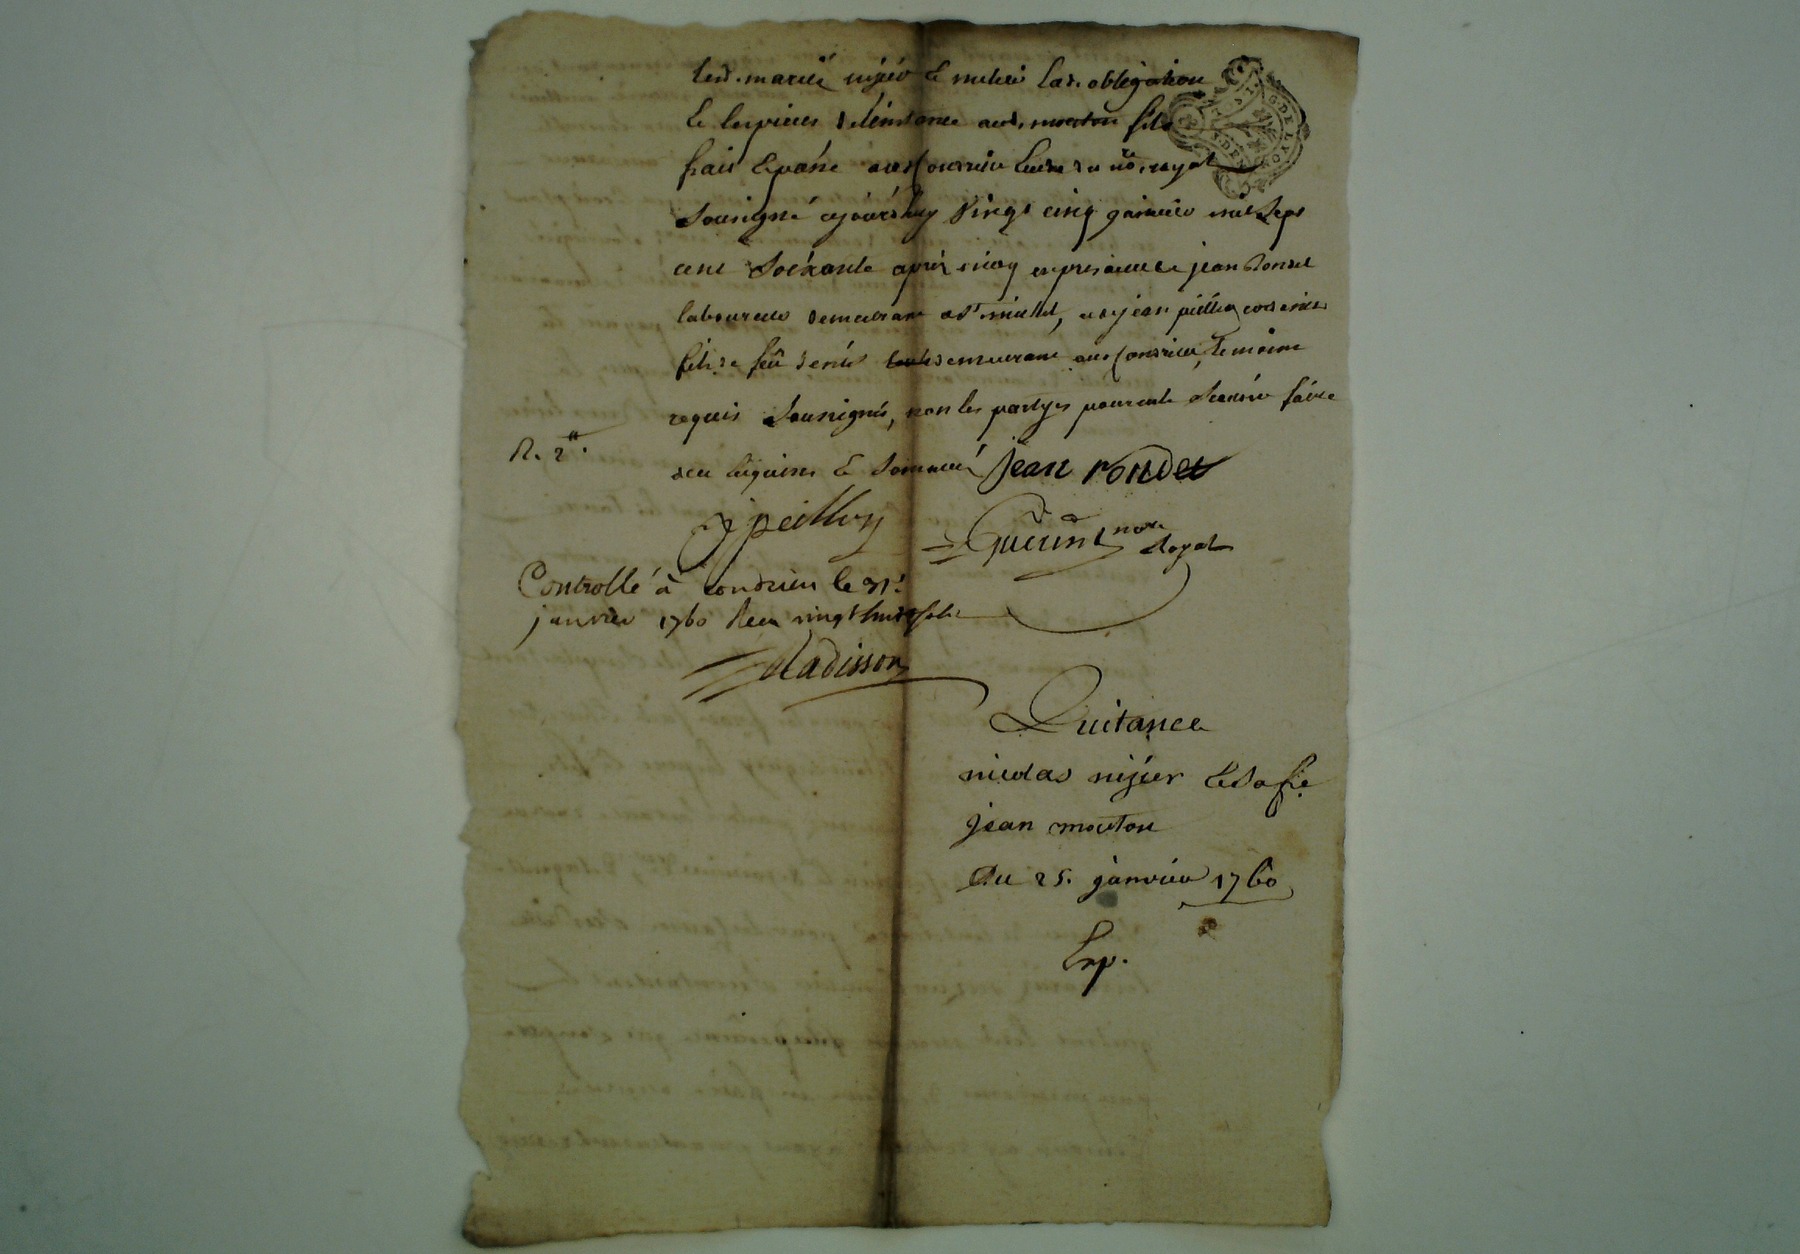 lesd. mariés nijier & mulier lad. obligation
& les pieces de l'instance aud. mouton fils
fait & passé aud. Condrieu étude du no.re royal
Soussigné ajourd'huy Vingt cinq janvier mil Sept
cent Soixante après midy en presence de jean Rondet
laboureur demeurant a St michel, et de jean peillon cordonier
fils de feu denis demeurant aud. Condrieu, temoins
requis Soussignés, non les partyes pour ne le Scavoir faire
de ce enquises & Sommées jean rondet
R. 2.
j peillon
Guerin no.re Royal
Controllé à Condrieu le 31.
janvier 1760 Recu vingt huit sols
Radisson
Quitance
nicolas nijier & Sa fe.
jean mouton
Du 25. janvier 1760
Exp.